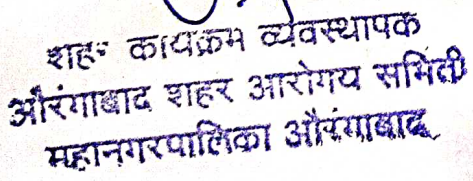 शहर कार्यक्रम व्यवस्थापक
औरंगाबाद शहर आरोग्य समिती
महानगरपालिका औरंगाबाद